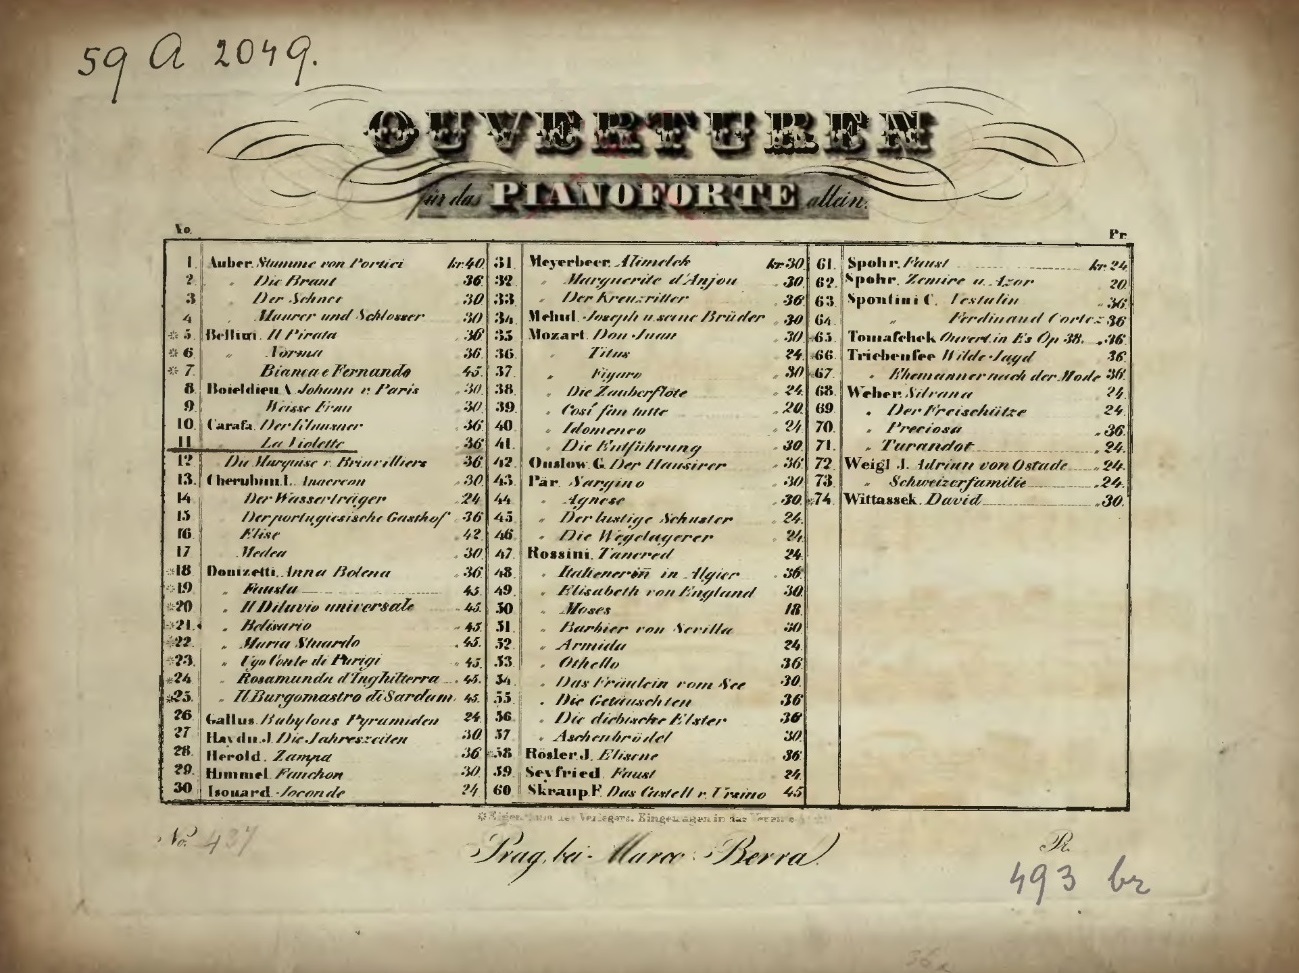 59 A 2049.
OUVERTUREN
für das PIANOFORTE allein.
No. Pr.
1 Auber. Stumme von Portici kr 40
2 " Die Braut 36
3 " Der Schnee 30
4 " Maurer und Schlosser 30
* 5 Bellini. Il Pirata 36
* 6 " Norma 36
* 7 Bianca e Fernando 45
8 Boieldieu A. Johann v. Paris 30
9 Weisse Frau 30
10 Carafa. Der Klausner 36
11 La Violette 36
12 Die Marquise v. Brinvilliers 36
13 Cherubini L. Anacreon 30
14 Der Wasserträger 24
15 Der portugiesische Gasthof 36
16 Elise 42
17 Medea 30
*18 Donizetti. Anna Bolena 36
*19 " Fausta 45
*20 " Il Diluvio universale 45
*21 " Belisario 45
*22 " Maria Stuardo 45
*23 " Ugo Conte di Parigi 45
*24 " Rosamunda d'Inghilterra 45
*25 " Il Burgomastro di Sardam 45
26 Gallus. Babylons Pyramiden 24
27 Haydn J. Die Jahreszeiten 30
28 Herold. Zampa 36
29 Himmel. Fanchon 30
30 Isouard. Joconde 24
31 Meyerbeer. Alimelek kr 30
32 " Marguerite d'Anjou 30
33 " Der Kreuzritter 36
34 Mehul. Joseph u. seine Brüder 30
35 Mozart. Don Juan 30
36 " Titus 24
37 " Figaro 30
38 " Die Zauberflöte 24
39 " Cosi fan tutte 20
40 " Idomeneo 24
41 " Die Entführung 30
42 Onslow G. Der Hausirer 36
43 Pär. Sargino 30
44 " Agnese 30
45 " Der lustige Schuster 24
46 " Die Wegelagerer 24
47 Rossini. Tancred 24
48 " Italienerin in Algier 36
49 " Elisabeth von England 30
50 " Moses 18
51 " Barbier von Sevilla 30
52 " Armida 24
53 " Othello 36
54 " Das Fräulein vom See 30
55 " Die Getäuschten 36
56 " Die diebische Elster 36
57 " Aschenbrödel 30
*58 Rösler J. Elisene 36
59 Seyfried. Faust 24
60 Skraup F. Das Castell v. Ursino 45
61 Spohr. Faust kr 24
62 Spohr. Zemire u. Azor 20
63 Spontini C. Vestalin 36
64 " Ferdinand Cortez 36
*65 Tomaschek Ouvert. in Es Op 38. 36
*66 Triebensee Wilde Jagd 36
*67 " Ehemänner nach der Mode 36
68 Weber. Silvana 24
69 " Der Freischütze 24
70 " Preciosa 36
71 " Turandot 24
72 Weigl J. Adrian von Ostade 24
73 " Schweizerfamilie 24
*74 Wittassek. David 30
* Eigenthum des Verlegers. Eingetragen in das Vereins
Prag, bei Marco Berra.
No. 437
Pr.
493 br
36